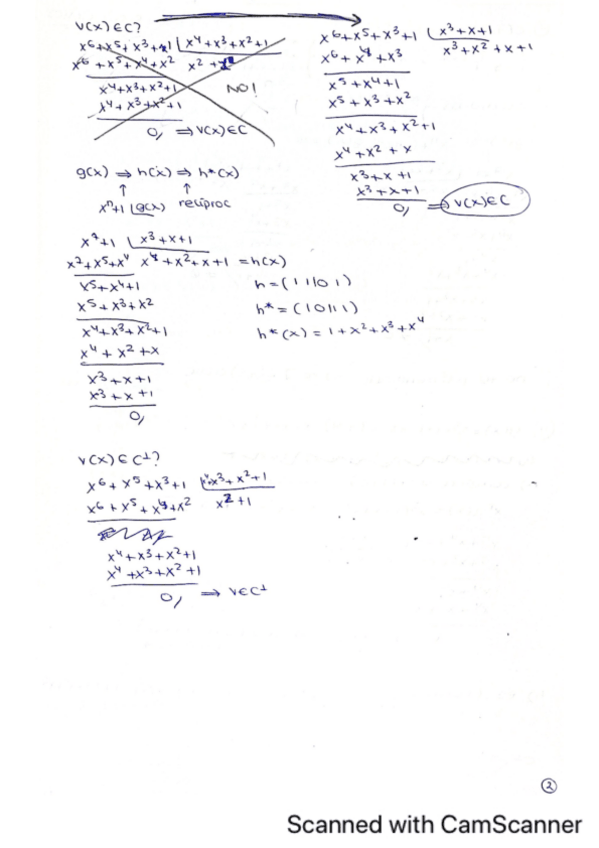 v(x) ∈ C?
x⁶+x⁵+x³+1 | x⁴+x³+x²+1
x⁶+x⁵+x⁴+x² x²+1
x⁴+x³+x²+1
x⁴+x³+x²+1
0, ⇒ v(x) ∈ C
NO!
x⁶+x⁵+x³+1 | x³+x+1
x⁶+x⁴+x³ x³+x²+x+1
x⁵+x⁴+1
x⁵+x³+x²
x⁴+x³+x²+1
x⁴+x²+x
x³+x+1
x³+x+1
0, ⇒ v(x) ∈ C
g(x) ⇒ h(x) ⇒ h*(x)
↑ ↑
xⁿ+1 | g(x) recíproc
x⁷+1 | x³+x+1
x⁷+x⁵+x⁴ x⁴+x²+x+1 = h(x)
x⁵+x⁴+1
x⁵+x³+x²
x⁴+x³+x²+1
x⁴+x²+x
x³+x+1
x³+x+1
0,
h = (11101)
h* = (10111)
h*(x) = 1+x²+x³+x⁴
v(x) ∈ C⊥?
x⁶+x⁵+x³+1 | x⁴+x³+x²+1
x⁶+x⁵+x⁴+x² x²+1
x⁴+x³+x²+1
x⁴+x³+x²+1
0, ⇒ v∈C⊥
2
Scanned with CamScanner